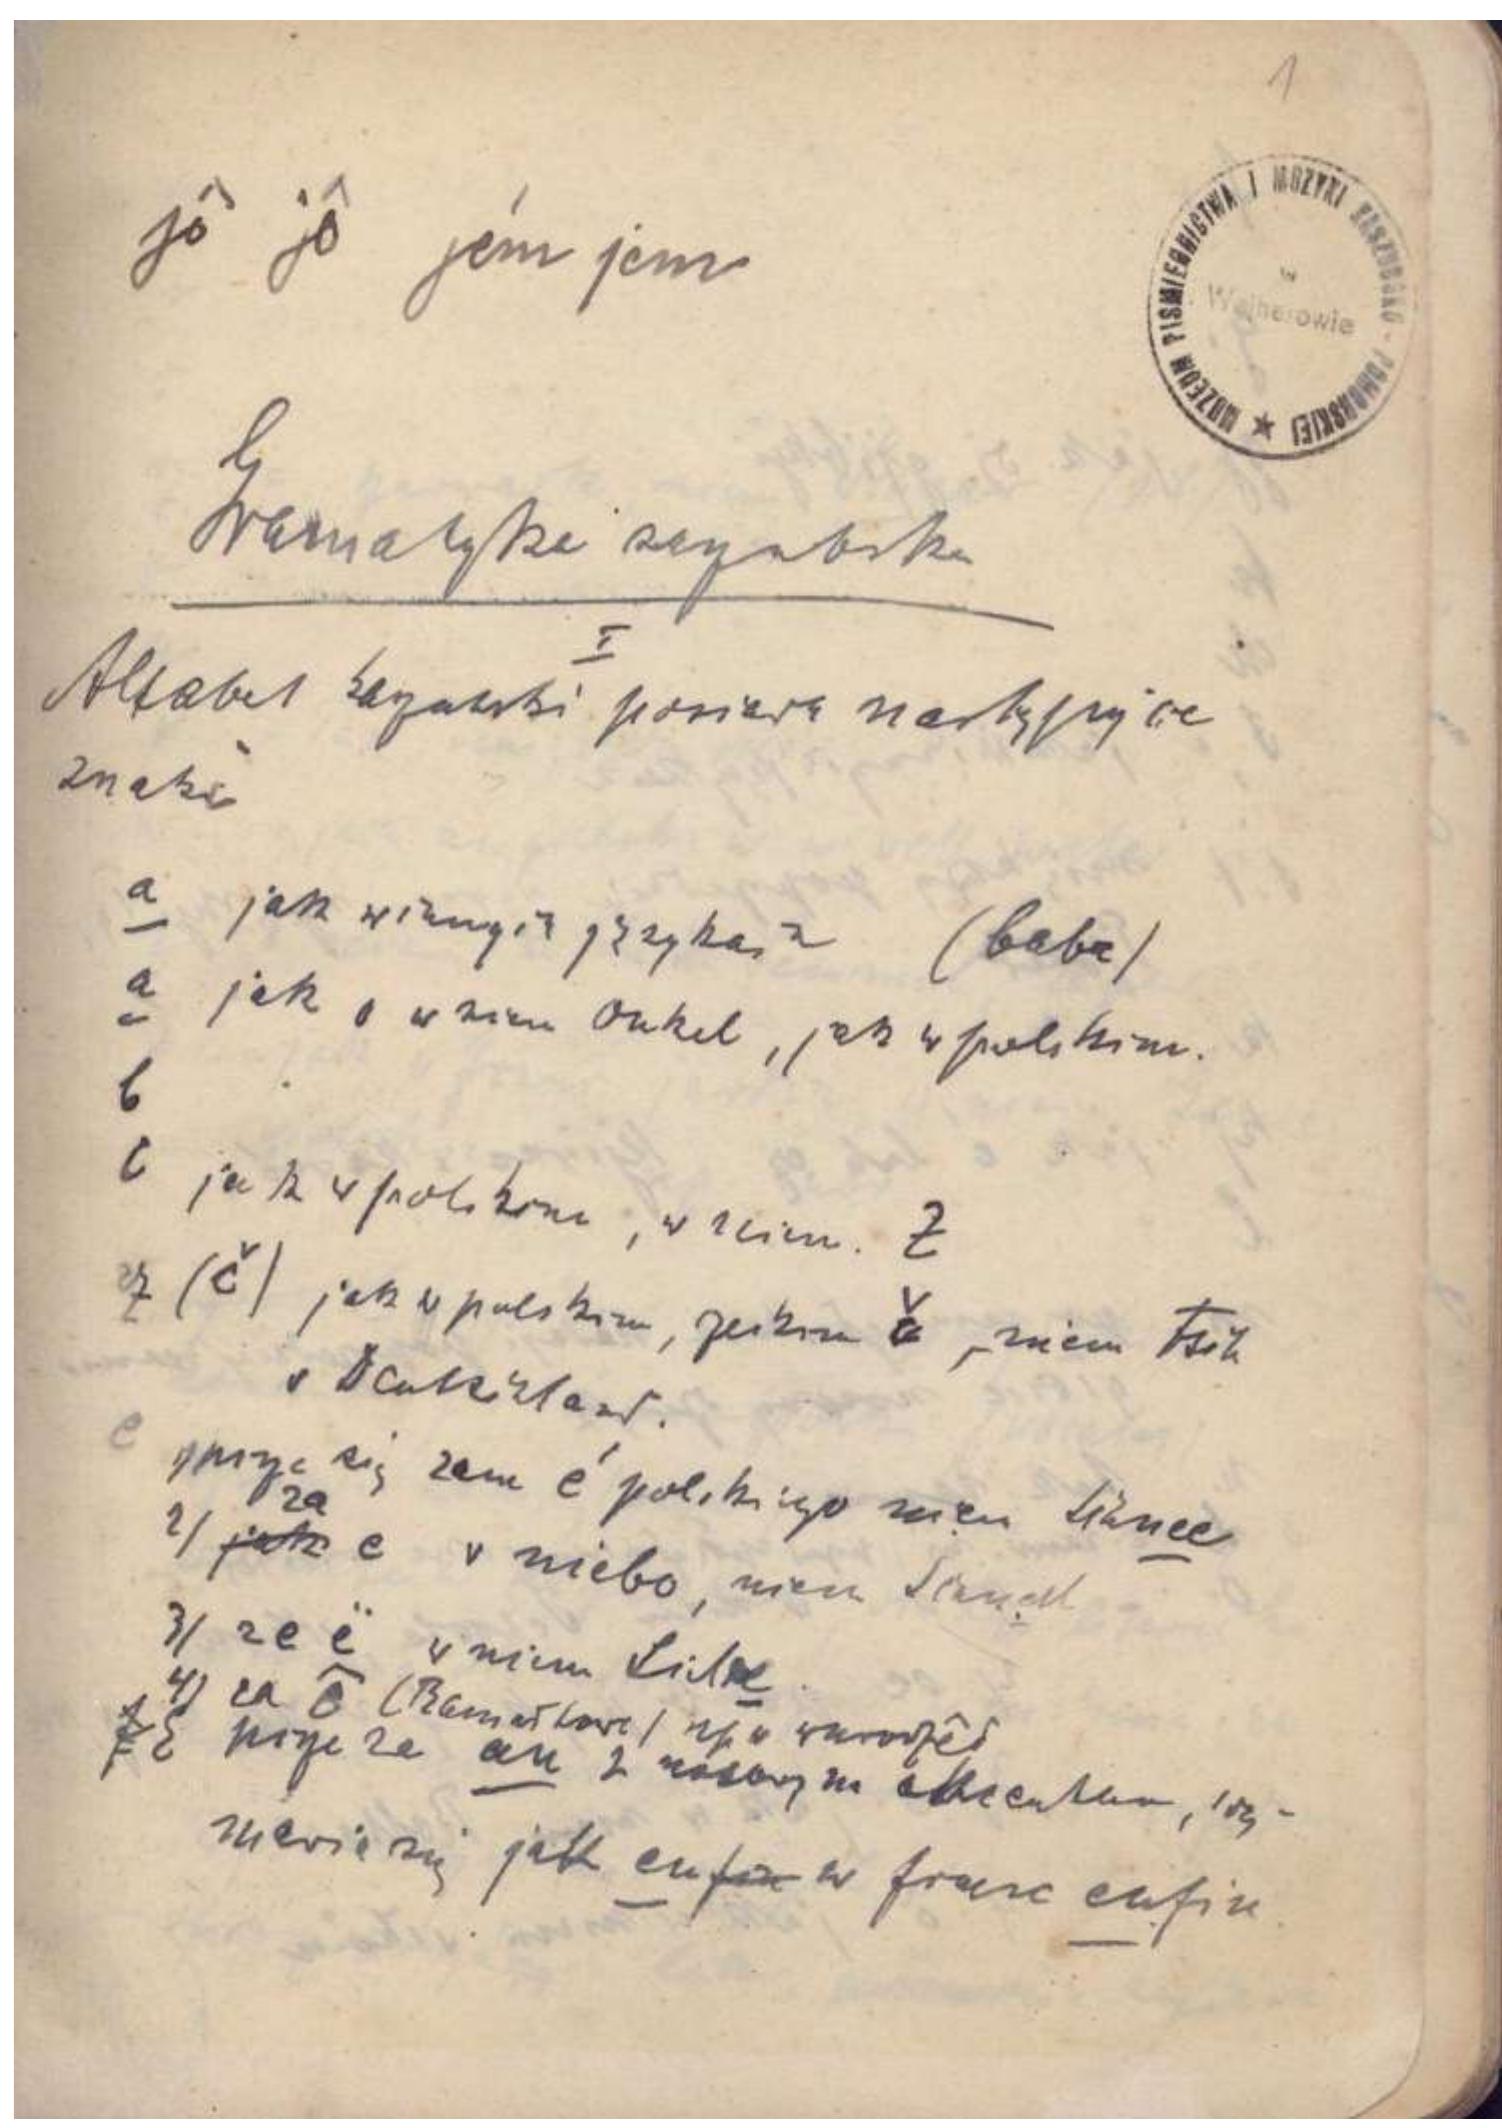 1
MUZEUM PIŚMIENNICTWA I MUZYKI KASZUBSKO-POMORSKIEJ
w
Wejherowie
jô jô jém jem
G
Gramatyka kaszubska
I
Alfabet kaszubski posiada następujące
znaki
a jak w innych językach (baba)
ą jak o w niem Onkel, jak w polskim.
b
c jak w polskim, w niem. Z
cz (č) jak w polskim, czeskim č, niem Tsch
w Deutschland.
e pisze się za é polskiego niem Schnee
2) jak za e w niebo, niem
3) za ë w niem Liebe.
4) za ê (Ramułtowe) np w
ę pisze za an z nosowym akcentem, wy-
mawia się jak en w franc enfin